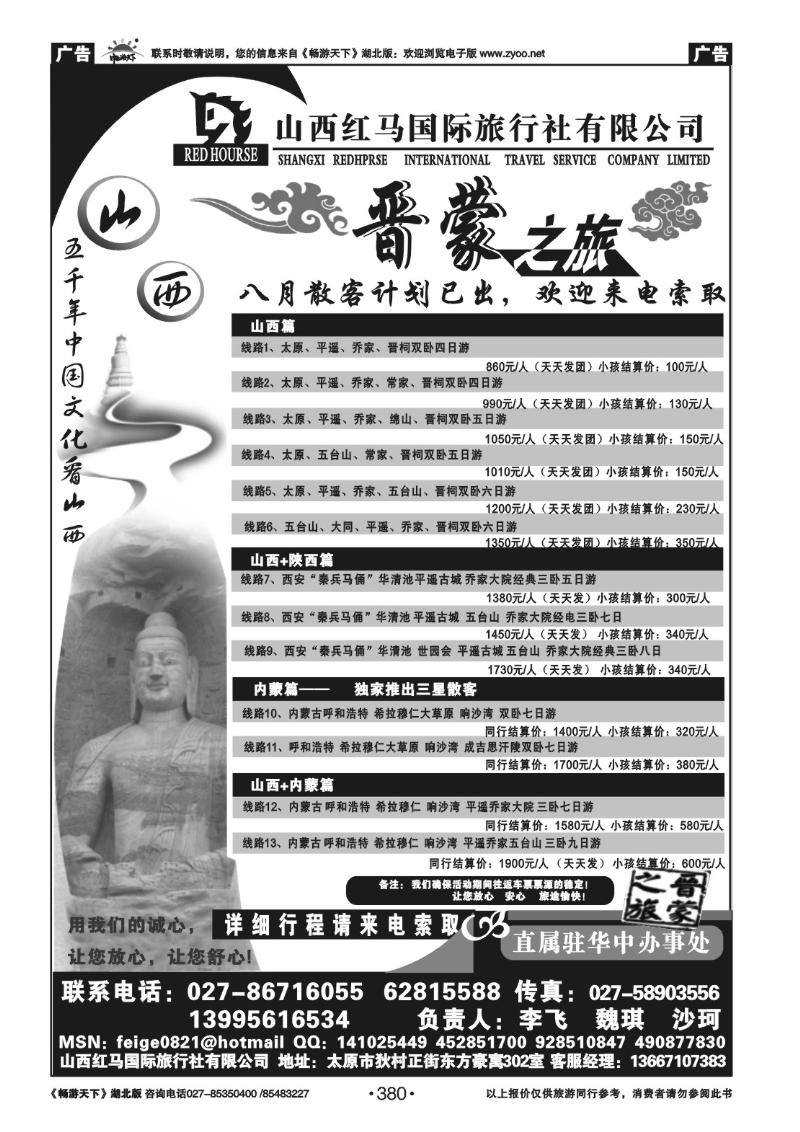 广告
畅游天下
联系时敬请说明，您的信息来自《畅游天下》湖北版：欢迎浏览电子版 www.zyoo.net
广告
RED HOURSE
山西红马国际旅行社有限公司
SHANGXI REDHPRSE INTERNATIONAL TRAVEL SERVICE COMPANY LIMITED
山
西
五千年中国文化看山西
晋蒙之旅
八月散客计划已出，欢迎来电索取
山西篇
线路1、太原、平遥、乔家、晋祠双卧四日游
860元/人（天天发团）小孩结算价：100元/人
线路2、太原、平遥、乔家、常家、晋祠双卧四日游
990元/人（天天发团）小孩结算价：130元/人
线路3、太原、平遥、乔家、绵山、晋祠双卧五日游
1050元/人（天天发团）小孩结算价：150元/人
线路4、太原、五台山、常家、晋祠双卧五日游
1010元/人（天天发团）小孩结算价：150元/人
线路5、太原、平遥、乔家、五台山、晋祠双卧六日游
1200元/人（天天发团）小孩结算价：230元/人
线路6、五台山、大同、平遥、乔家、晋祠双卧六日游
1350元/人（天天发团）小孩结算价：350元/人
山西+陕西篇
线路7、西安“秦兵马俑”华清池平遥古城 乔家大院经典三卧五日游
1380元/人（天天发）小孩结算价：300元/人
线路8、西安“秦兵马俑”华清池 平遥古城 五台山 乔家大院经电三卧七日
1450元/人（天天发） 小孩结算价：340元/人
线路9、西安“秦兵马俑”华清池 世园会 平遥古城 五台山 乔家大院经典三卧八日
1730元/人（天天发） 小孩结算价：340元/人
内蒙篇—— 独家推出三星散客
线路10、内蒙古呼和浩特 希拉穆仁大草原 响沙湾 双卧七日游
同行结算价：1400元/人 小孩结算价：320元/人
线路11、呼和浩特 希拉穆仁大草原 响沙湾 成吉思汗陵双卧七日游
同行结算价：1700元/人 小孩结算价：380元/人
山西+内蒙篇
线路12、内蒙古 呼和浩特 希拉穆仁 响沙湾 平遥乔家大院 三卧七日游
同行结算价：1580元/人 小孩结算价：580元/人
线路13、内蒙古 呼和浩特 希拉穆仁 响沙湾 平遥乔家五台山 三卧九日游
同行结算价：1900元/人 （天天发） 小孩结算价：600元/人
备注：我们确保活动期间往返车票票源的稳定！
让您放心 安心 旅途愉快！
晋蒙之旅
用我们的诚心，
让您放心，让您舒心！
详细行程请来电索取
直属驻华中办事处
联系电话：027-86716055 62815588 传真：027-58903556
13995616534 负责人：李飞 魏琪 沙珂
MSN：feige0821@hotmail QQ：141025449 452851700 928510847 490877830
山西红马国际旅行社有限公司 地址：太原市狄村正街东方豪寓302室 客服经理：13667107383
《畅游天下》湖北版 咨询电话027-85350400 /85483227
·380·
以上报价仅供旅游同行参考，消费者请勿参阅此书